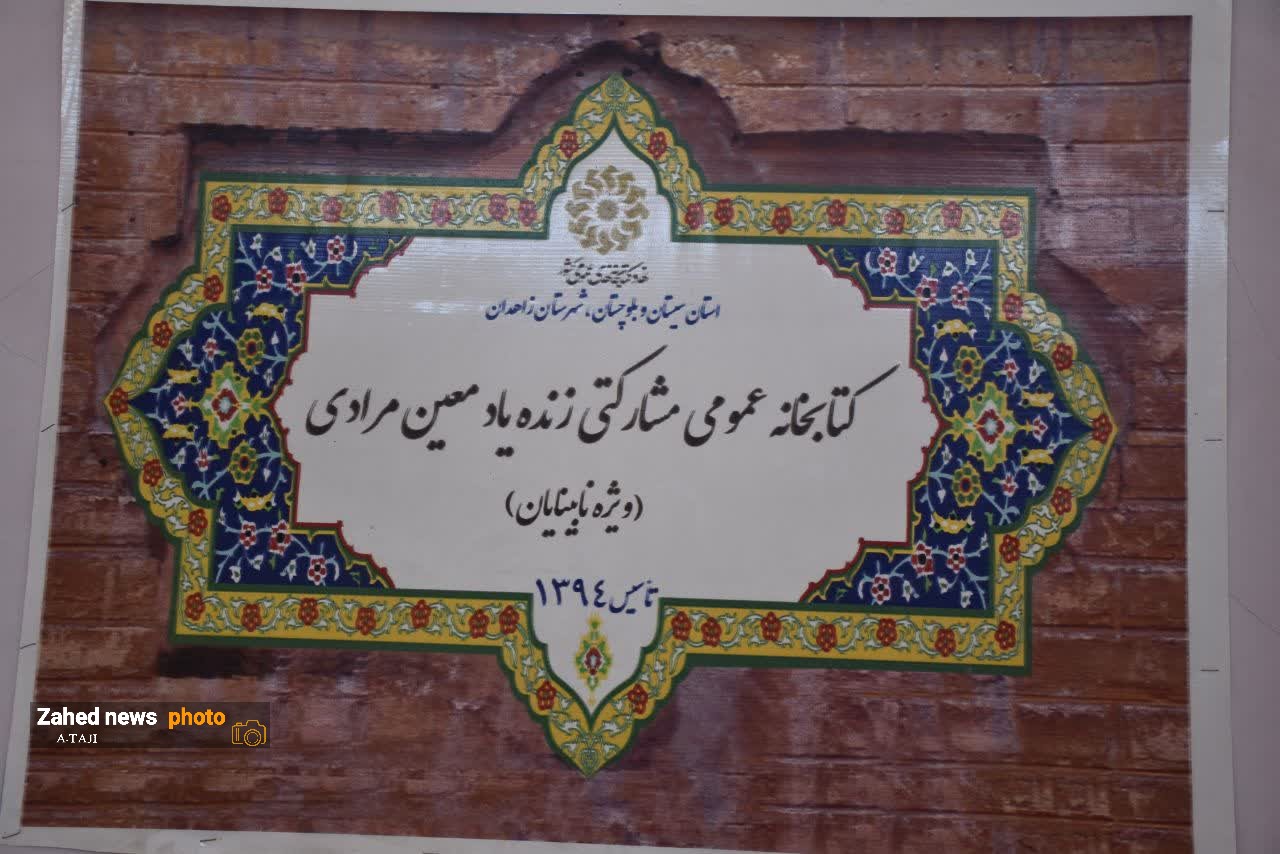 نهاد کتابخانه‌های عمومی کشور
استان سیستان و بلوچستان، شهرستان زاهدان
کتابخانه عمومی مشارکتی زنده یاد معین مرادی
(ویژه نابینایان)
تاسیس ۱۳۹۴
Zahed news photo
A-TAJI